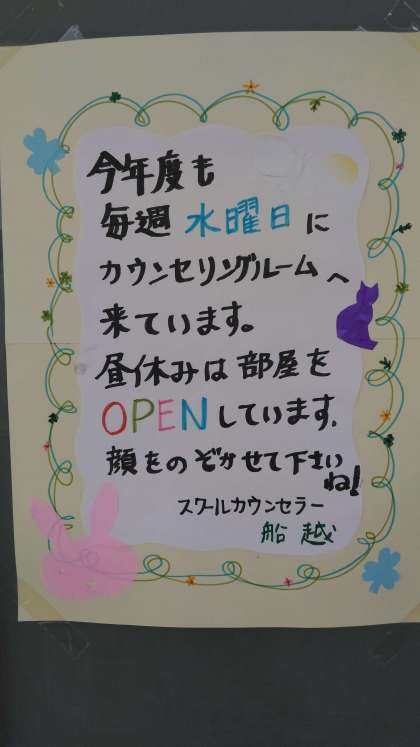 今年度も
毎週 水曜日に
カウンセリングルームへ
来ています。
昼休みは部屋を
OPENしています.
顔をのぞかせて下さい
ね!
スクールカウンセラー
船越